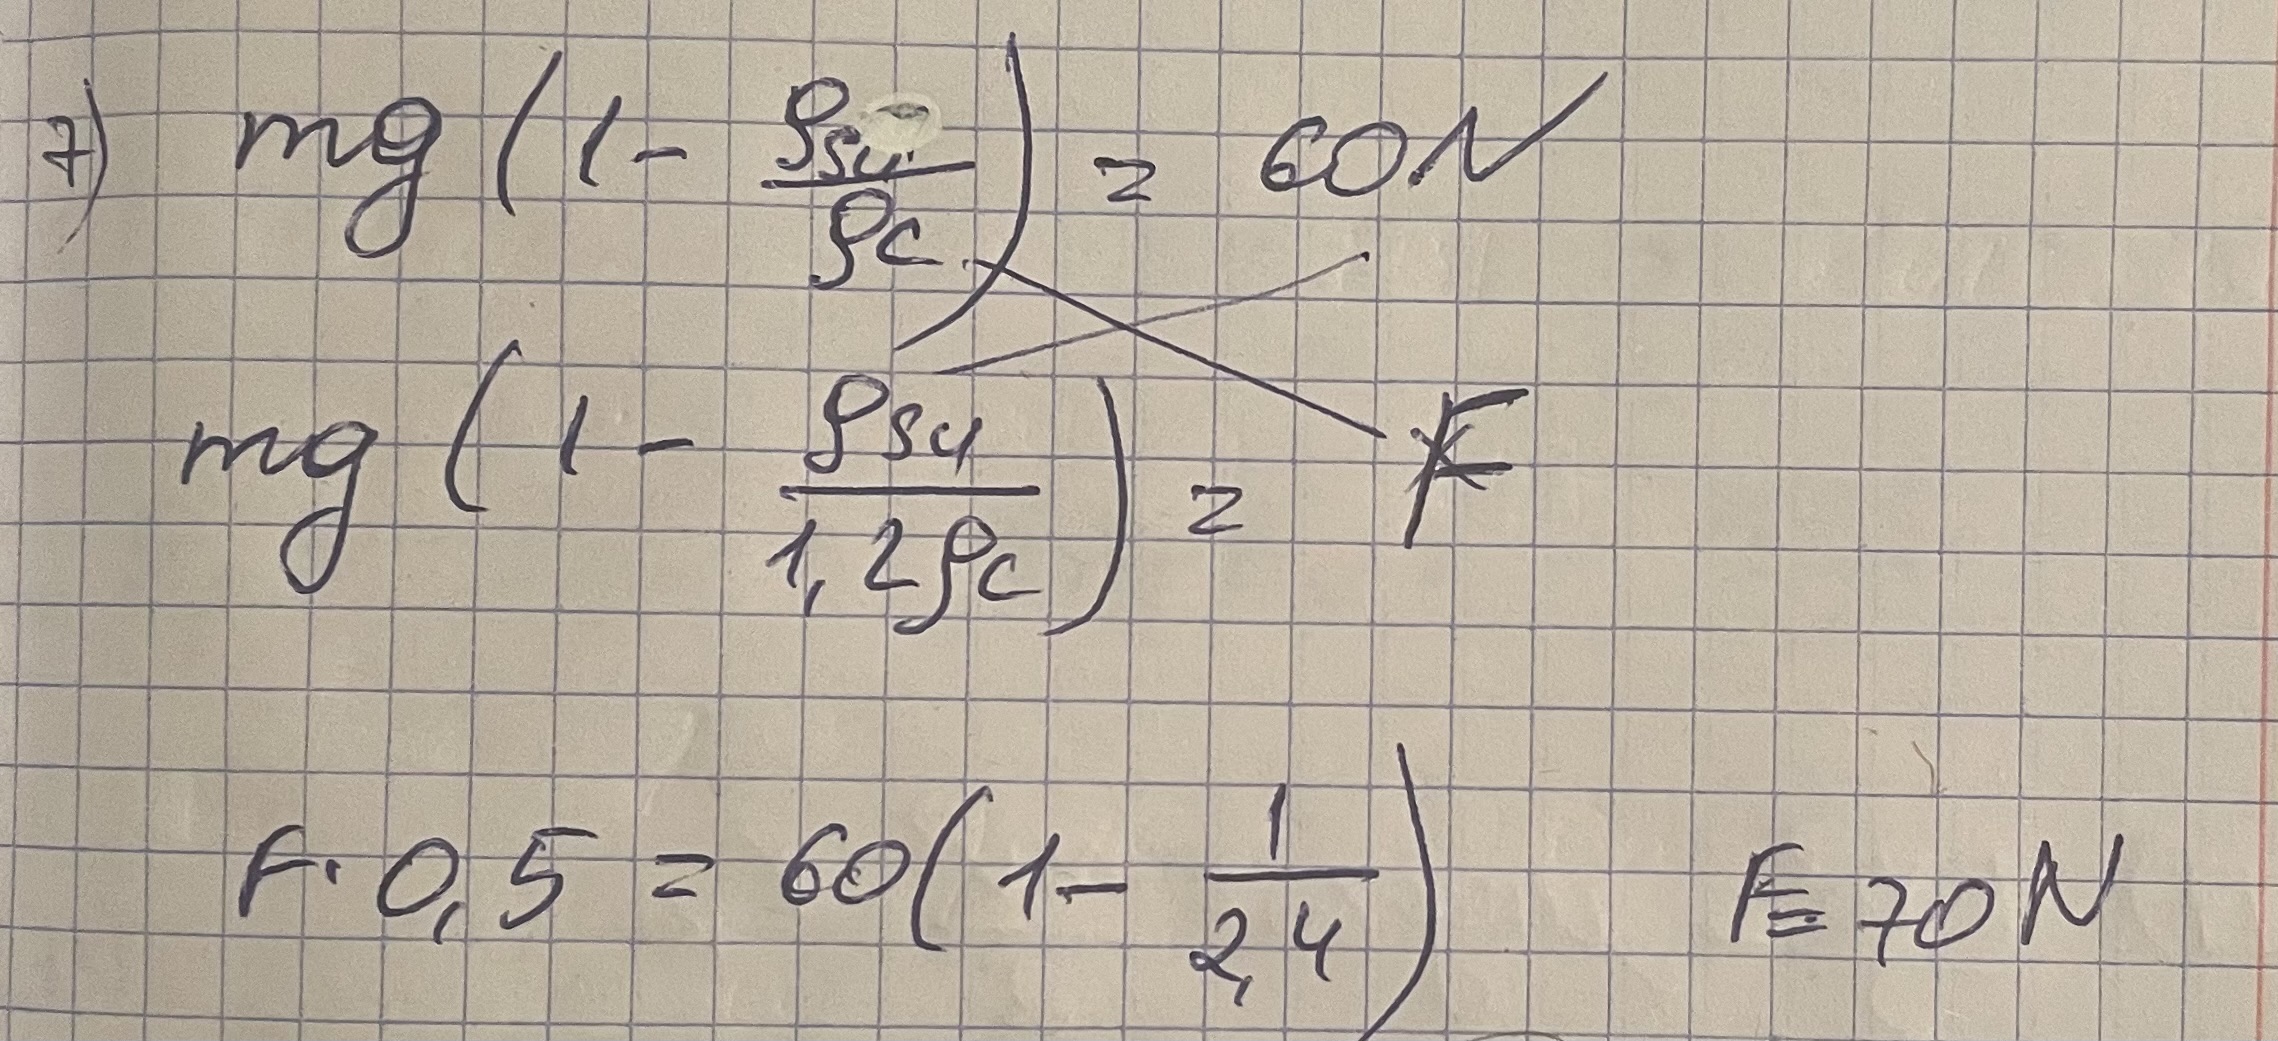 7) mg (1 - ρsu/ρc) = 60N
mg (1 - ρsu/1,2ρc) = F
F · 0,5 = 60(1 - 1/2,4) F = 70N